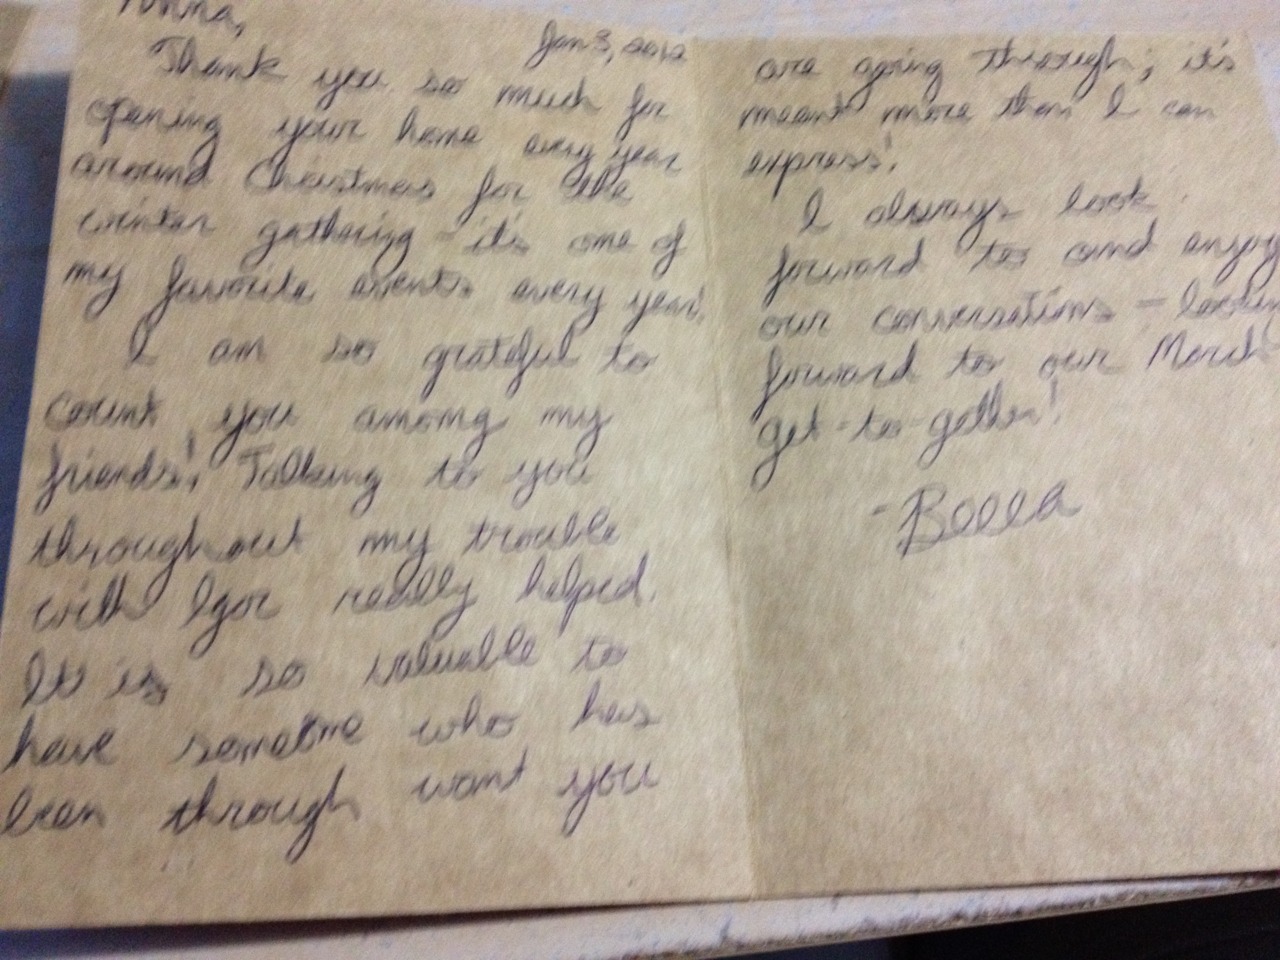 Jan 3, 2012
Thank you so much for
opening your home every year
around Christmas for the
winter gathering - it's one of
my favorite events every year!
I am so grateful to
count you among my
friends! Talking to you
throughout my trouble
with Igor really helped.
It is so valuable to
have someone who has
been through want you
are going through; it's
meant more than I can
express!
I always look
forward to and enjoy
our conversations - looking
forward to our March
get-to-gether!
-Bella